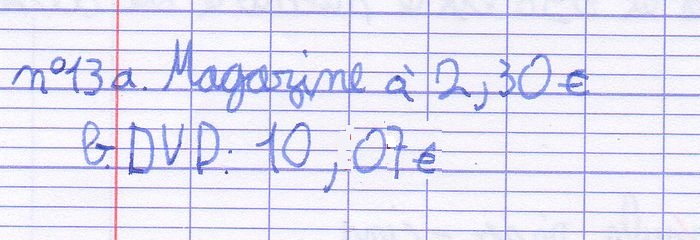 n°13 a. Magazine à 2,30 €
b. DVD: 10,07 €